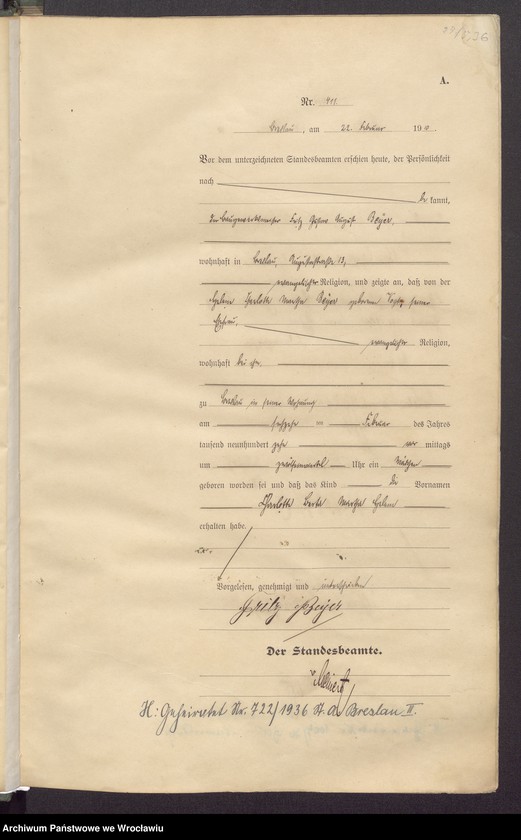 A.
Nr. 911.
Breslau, am 22. Februar 1910.
Vor dem unterzeichneten Standesbeamten erschien heute, der Persönlichkeit
nach
kannt,
August Beyer,
wohnhaft in Breslau, Augustastraße
evangelischer Religion, und zeigte an, daß von der
Helene Charlotte Martha Beyer geborenen seiner
Ehefrau,
evangelischer Religion,
wohnhaft bei ihm,
zu Breslau in seiner Wohnung
am Februar des Jahres
tausend neunhundert zehn vor mittags
um Uhr ein Mädchen
geboren worden sei und daß das Kind die Vornamen
Charlotte Berta Martha Helene
erhalten habe.
Vorgelesen, genehmigt und unterschrieben
Fritz Beyer
Der Standesbeamte.
H: Geheiratet Nr. 722/1936 St. A. Breslau II.
Archiwum Państwowe we Wrocławiu